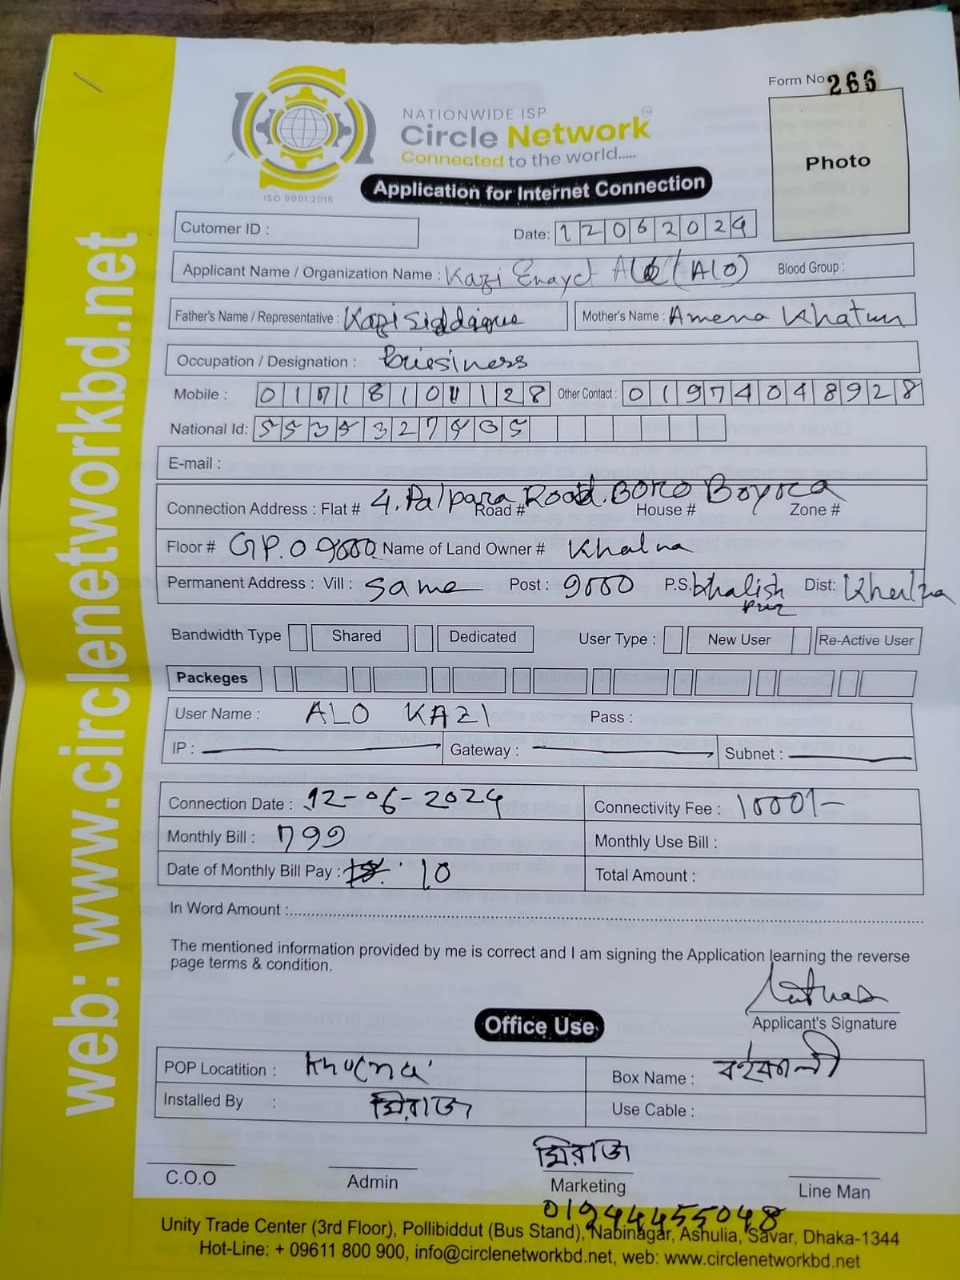 Form No 266
NATIONWIDE ISP
Circle Network™
Connected to the world.....
ISO 9001:2015
Application for Internet Connection
Photo
Cutomer ID :
Date: 12062024
Applicant Name / Organization Name : Kazi Enayet (ALO) Blood Group :
Father's Name / Representative : Kazi Siddique Mother's Name : Amena Khatun
Occupation / Designation : Buisiness
Mobile : 01718101128 Other Contact : 01974048928
National Id:
E-mail :
Connection Address : Flat # 4, Palpara Road. Boro Boyra Road# House # Zone #
Floor # G.P.O 9000 Name of Land Owner # Khulna
Permanent Address : Vill : Same Post : 9000 P.S. khalishpur Dist: Khulna
Bandwidth Type Shared Dedicated User Type : New User Re-Active User
Packeges
User Name : ALO KAZI Pass :
IP : Gateway : Subnet :
Connection Date : 12-06-2024 Connectivity Fee : 1000/-
Monthly Bill : 799 Monthly Use Bill :
Date of Monthly Bill Pay : 10 Total Amount :
In Word Amount :
The mentioned information provided by me is correct and I am signing the Application learning the reverse
page terms & condition.
Applicant's Signature
Office Use
POP Locatition : Khulna Box Name :
Installed By : মিরাজ Use Cable :
মিরাজ
C.O.O Admin Marketing Line Man
01944455048
Unity Trade Center (3rd Floor), Pollibiddut (Bus Stand), Nabinagar, Ashulia, Savar, Dhaka-1344
Hot-Line: + 09611 800 900, info@circlenetworkbd.net, web: www.circlenetworkbd.net
web: www.circlenetworkbd.net